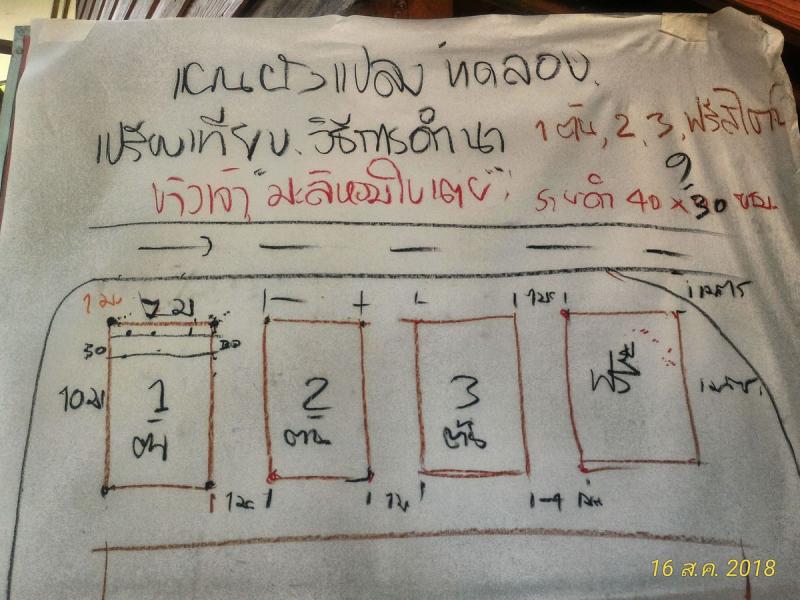 แผนผังแปลงทดลอง
เปรียบเทียบวิธีการดำนา 1 ต้น, 2, 3, ฟรีสไตล์
ข้าวเจ้า "มะลิหอมใบเตย" ระยะดำ 40 x 30 ซม.
1 ม. 7 ม 1 ม. 1 เมตร
30 30
10 ม 1 2 3
ต้น ต้น ต้น
1 ม. 1 ม
16 ส.ค. 2018